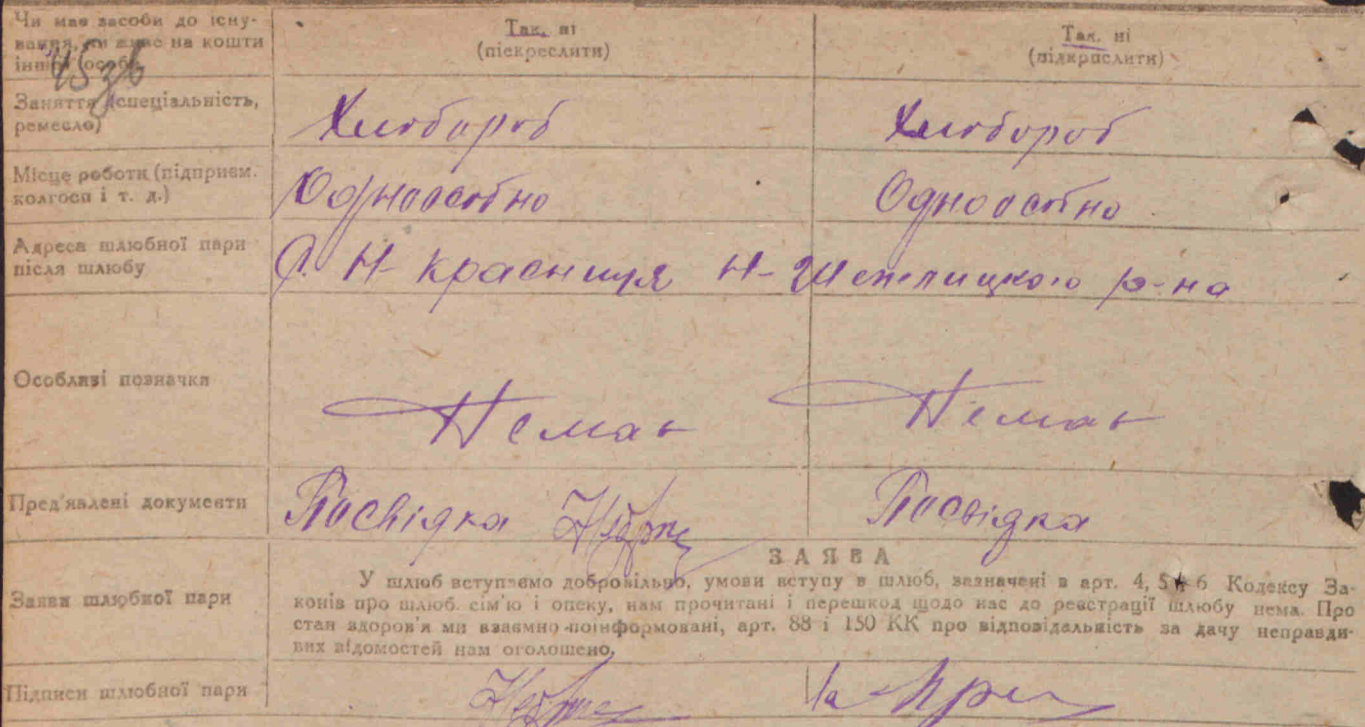 Чи має засоби до існу-
вання, чи живе на кошти
іншої особи
Так, ні
(піскреслити)
Так, ні
(підкрислити)
45 зв
Заняття (спеціальність,
ремесло)
Хлібороб
Хлібороб
Місце роботи (підприєм.
колгосп і т. д.)
Одноосібно
Одноосібно
Адреса шлюбної пари
після шлюбу
С. Н-Красниця Н- р-на
Особливі позначки
Немає
Немає
Пред'явлені документи
Посвідка
Посвідка
ЗАЯВА
Заяви шлюбної пари
У шлюб вступаємо добровільно, умови вступу в шлюб, зазначені в арт. 4, 5 і 6 Кодексу За-
конів про шлюб. сім'ю і опеку, нам прочитані і перешкод щодо нас до реєстрації шлюбу нема. Про
стан здоров'я ми взаємно поінформовані, арт. 88 і 150 КК про відповідальність за дачу неправди-
вих відомостей нам оголошено.
Підписи шлюбної пари